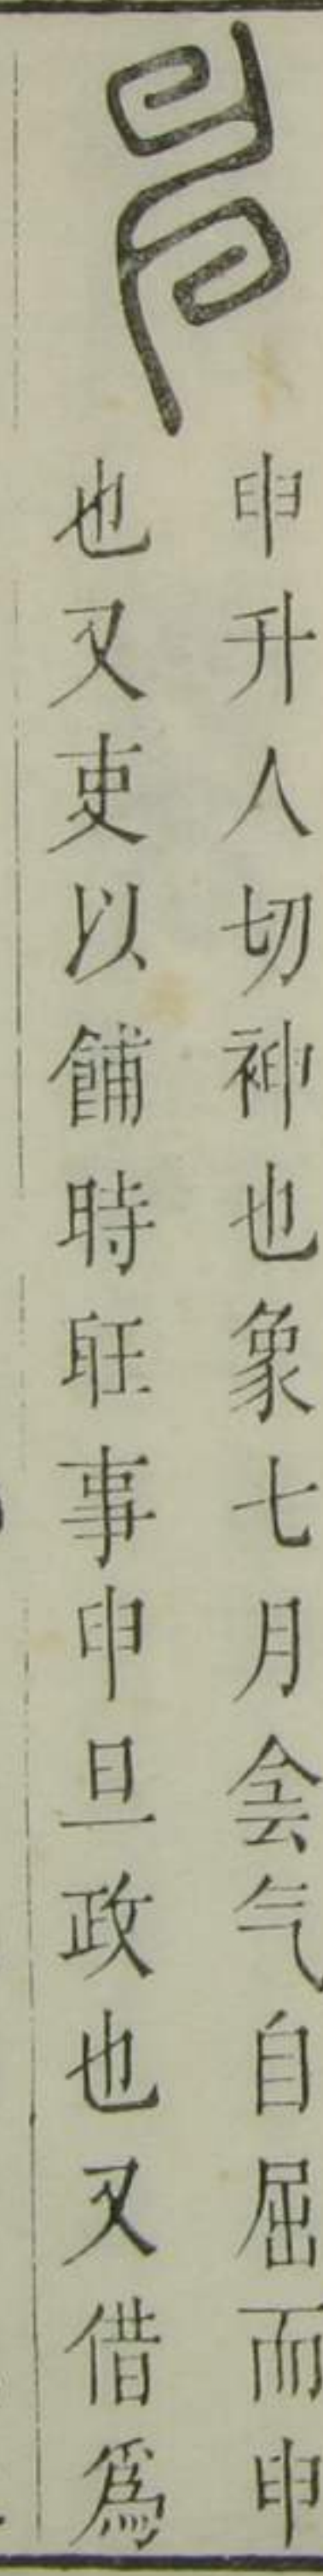 申升人切神也象七月侌气自屈而申
也又吏以餔時𦖠事申旦政也又借爲